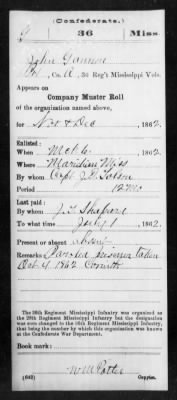 (Confederate.)
36 Miss
John Gannon
Co. A, 36 Reg't Mississippi Vols.
Appears on
Company Muster Roll
of the organization named above,
for Nov & Dec, 1862.
Enlisted:
When Mch 6, 1862.
Where Meridian Miss
By whom Capt J.
Period 12 Mo
Last paid:
By whom J. T.
To what time July 1, 1862.
Present or absent Absent
Remarks: Paroled prisoner taken
Oct 4 1862 Corinth
The 36th Regiment Mississippi Infantry was organized as
the Regiment Mississippi Infantry but the designation
was soon changed to the 36th Regiment Mississippi Infantry,
that being the number by which the regiment was known at
the Confederate War Department.
Book mark:
(642)
Copyist.